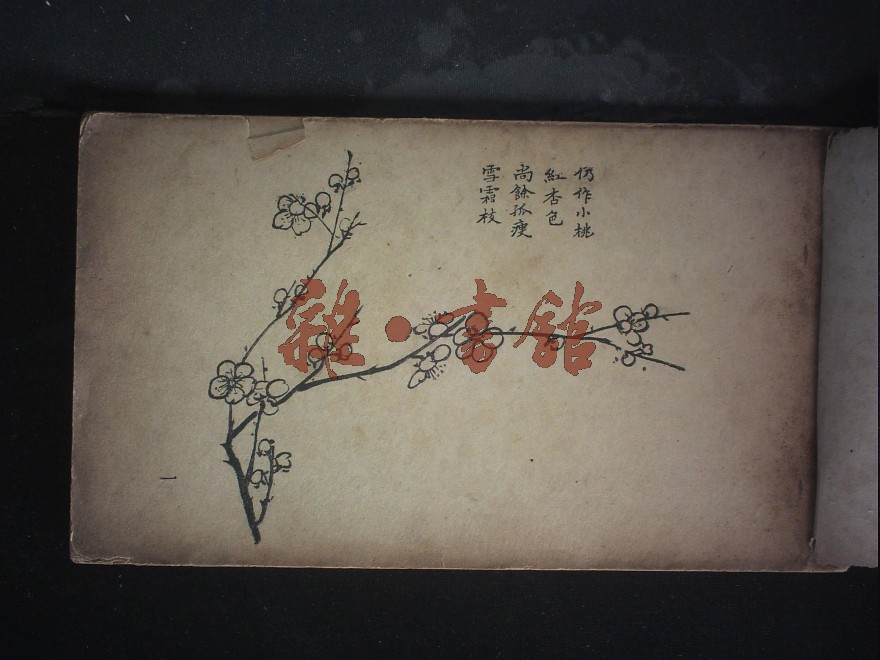 仍作小桃
紅杏色
尚餘孤瘦
雪霜枝
雜·書館